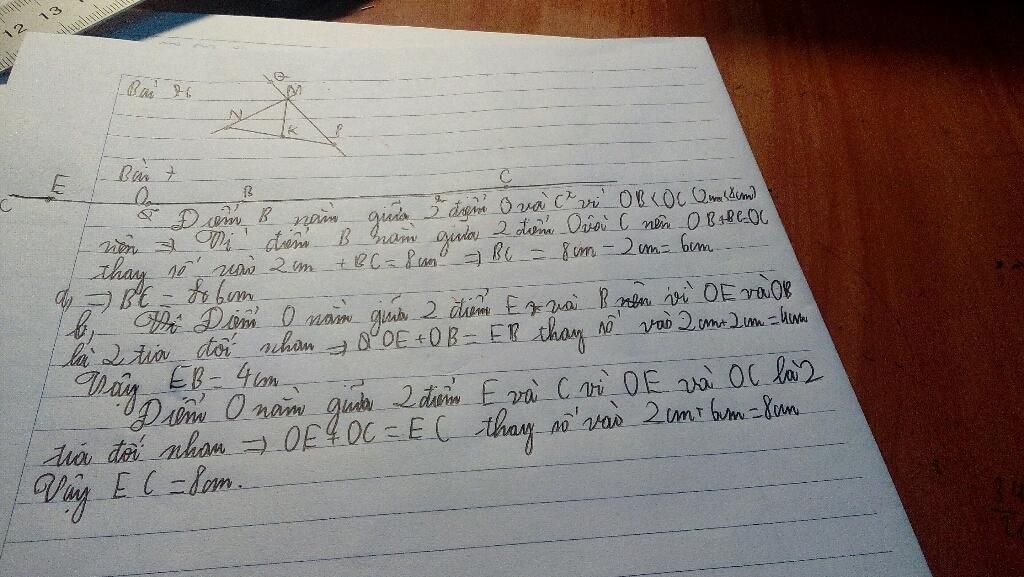 12 13
Bài
Q
M
N
K
P
Bài 7
C E O B C
Điểm B nằm giữa 2 điểm O và C vì OB < OC (2cm < 8cm)
nên ⇒ Vì điểm B nằm giữa 2 điểm O với C nên OB + BC = OC
thay số vào 2cm + BC = 8cm ⇒ BC = 8cm - 2cm = 6cm
a, ⇒ BC = 6cm
b, Điểm O nằm giữa 2 điểm E và B vì OE và OB
là 2 tia đối nhau ⇒ OE + OB = EB thay số vào 2cm + 2cm = 4cm
Vậy EB = 4cm
Điểm O nằm giữa 2 điểm E và C vì OE và OC là 2
tia đối nhau ⇒ OE + OC = EC thay số vào 2cm + 6cm = 8cm
Vậy EC = 8cm.